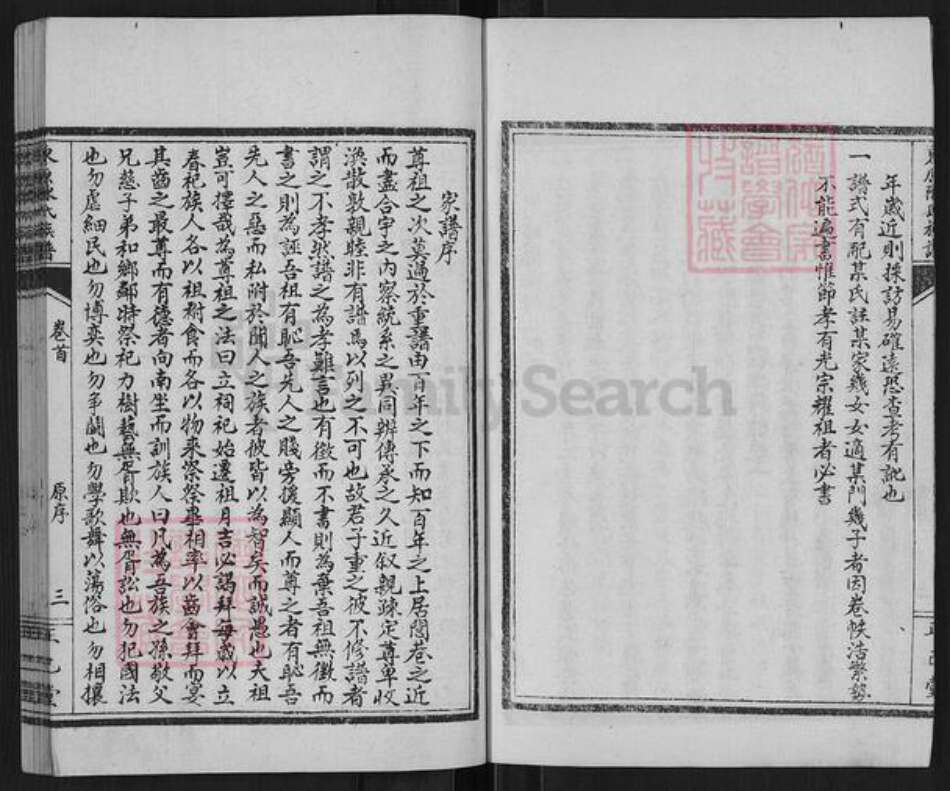 年歲近則採訪易確遠恐查考有訛也
一譜式有配某氏註某家幾女女適某門幾子者因卷帙浩繁勢
不能遍書惟節孝有光宗耀祖者必書
家譜序
尊祖之次莫過於重譜由百年之下而知百年之上居閭巷之近
而盡合宇之內察統系之異同辨傳承之久近叙親疎定尊卑收
渙散敦親睦非有譜焉以列之不可也故君子重之彼不修譜者
謂之不孝然譜之為孝難言也有徵而不書則為棄吾祖無徵而
書之則為誣吾祖有恥吾先人之賤旁援顯人而尊之者有恥吾
先人之惡而私附於聞人之族者彼皆以為智矣而誠愚也夫祖
豈可擇哉為尊祖之法曰立祠祀始遷祖月吉必謁拜每歲以立
春祀族人各以祖祔食而各以物來祭祭畢相率以齒會拜而宴
其齒之最尊而有德者向南坐而訓族人曰凡為吾族之孫敬父
兄慈子弟和鄉鄰時祭祀力樹藝無胥欺也無胥訟也勿犯國法
也勿虐細民也勿博奕也勿爭鬭也勿學歌舞以蕩俗也勿相攘
氏族譜
卷首
原序
三
正己堂
FamilySearch